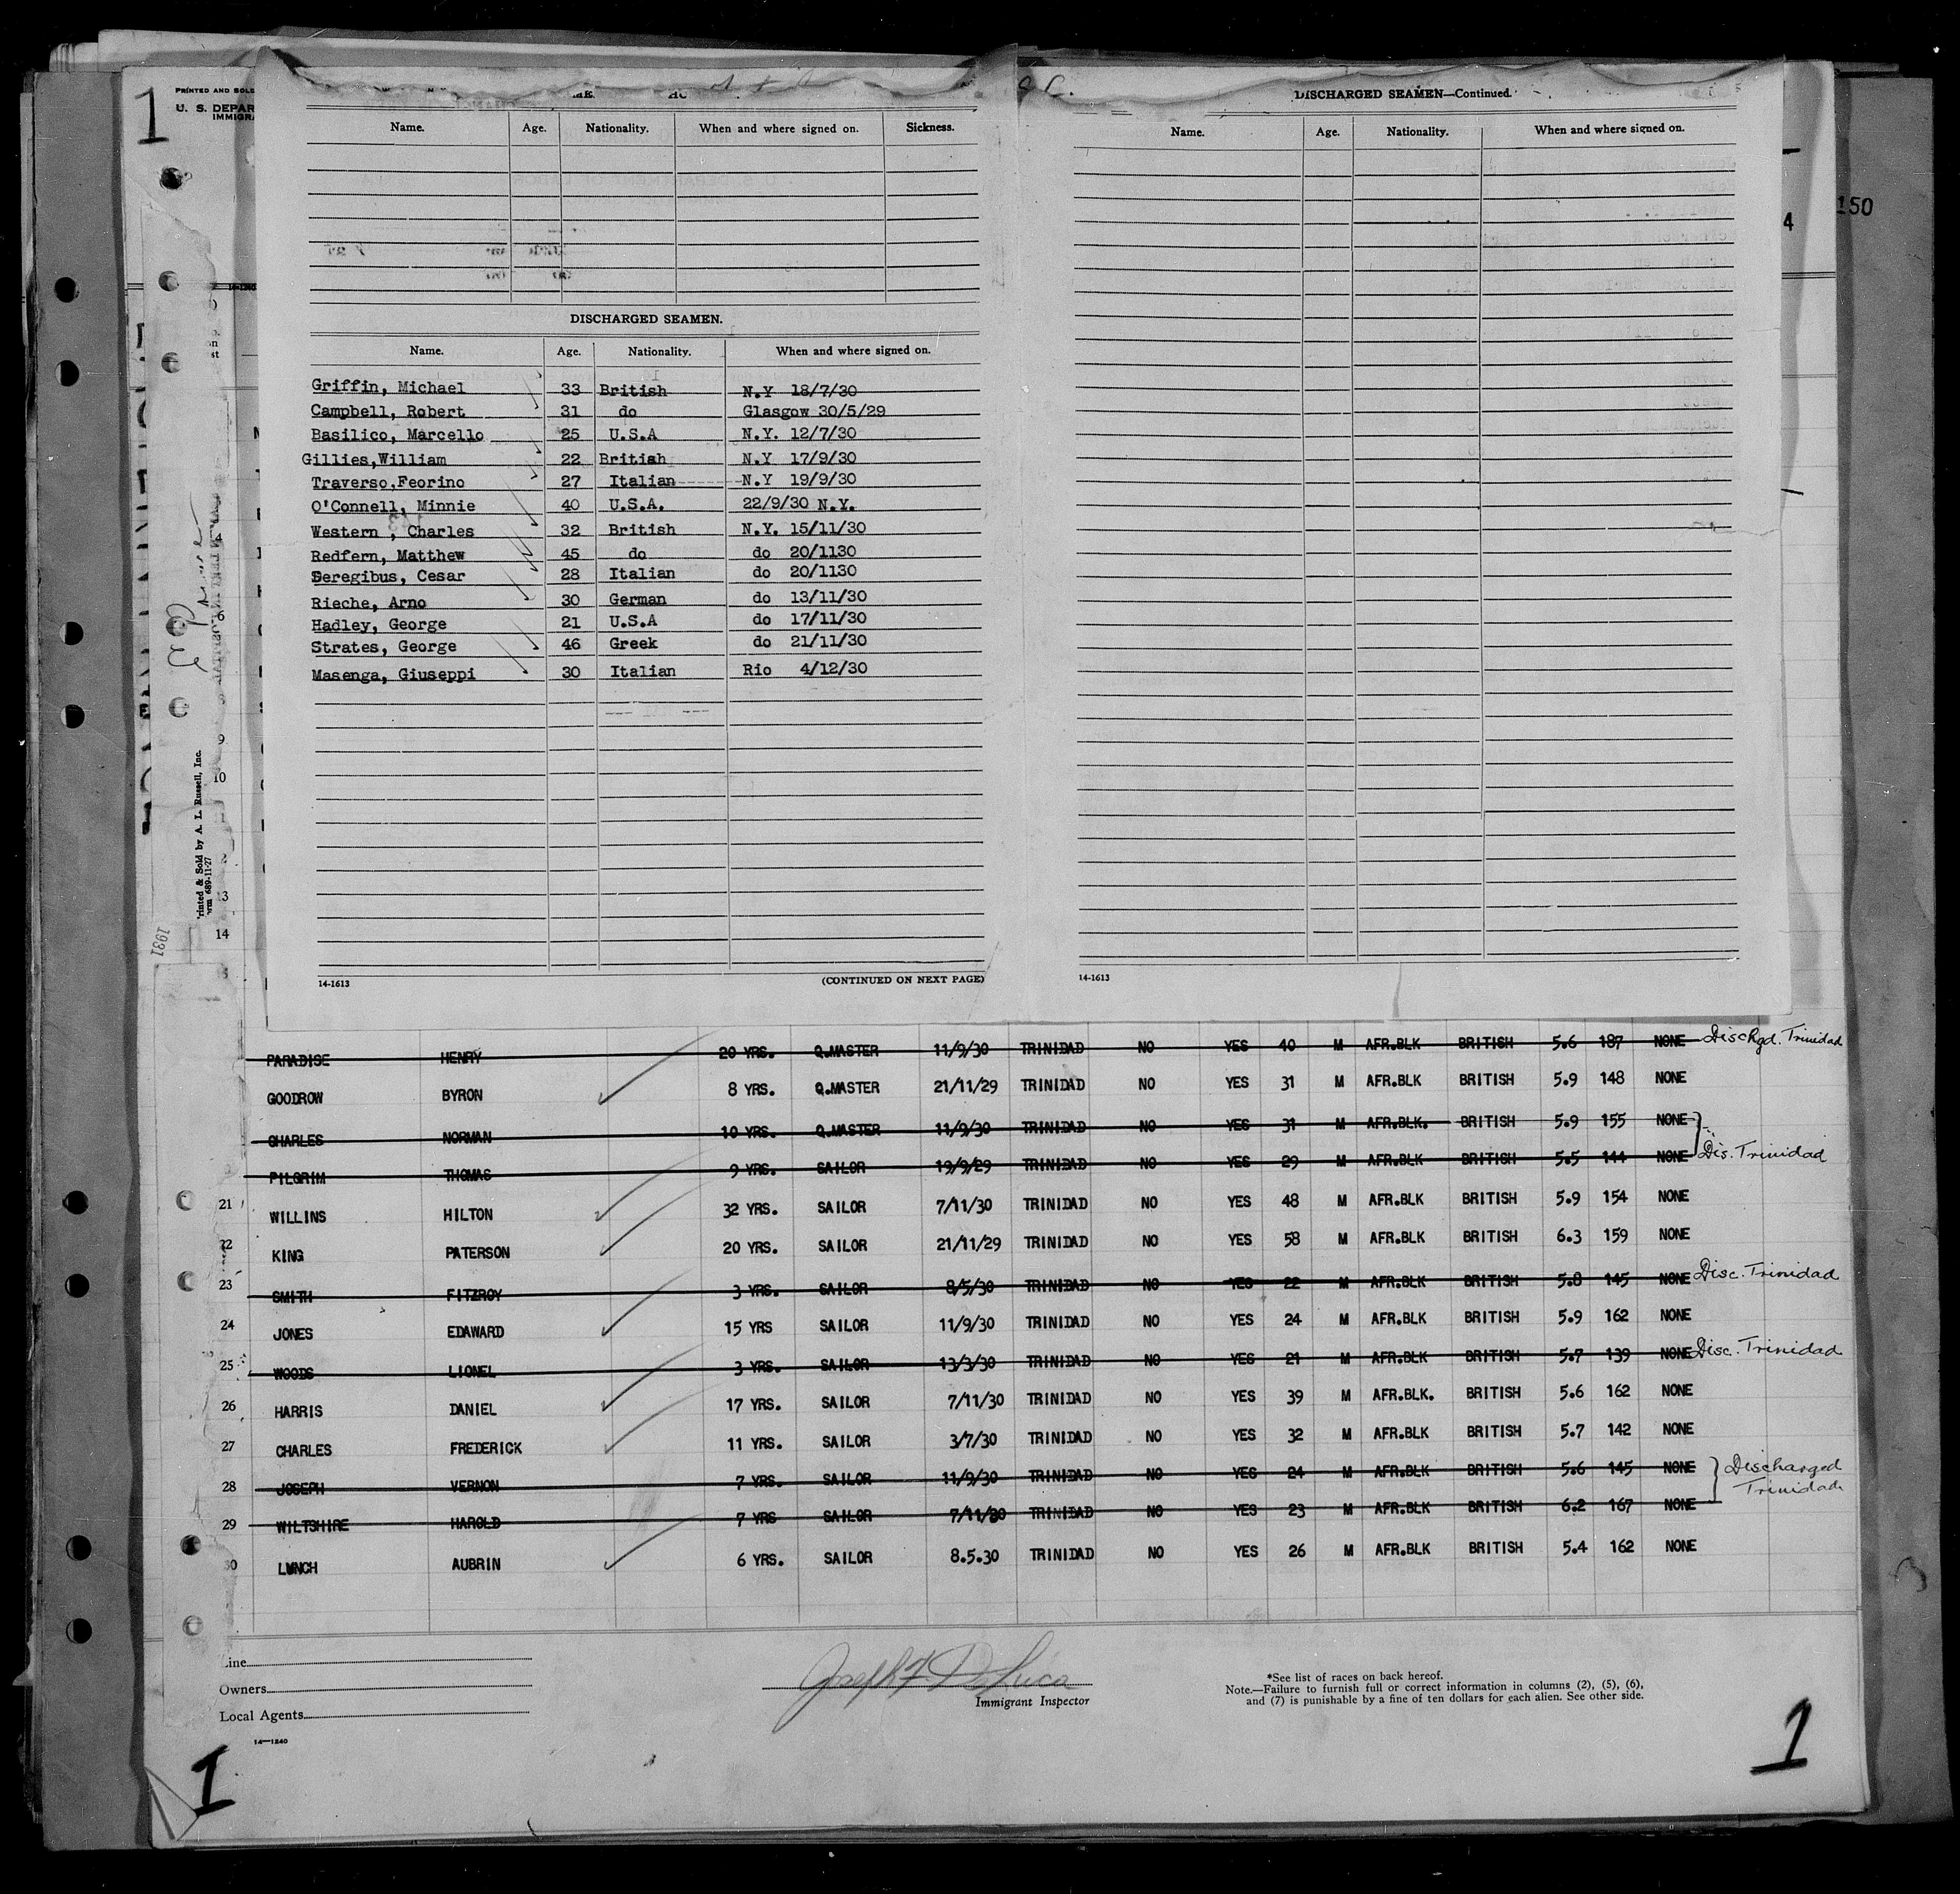 1
PRINTED AND SOLD
U. S. DEPAR
IMMIGRA
150
4
Name. Age. Nationality. When and where signed on. Sickness.
DISCHARGED SEAMEN.
Name. Age. Nationality. When and where signed on.
Griffin, Michael 33 British N.Y 18/7/30
Campbell, Robert 31 do Glasgow 30/5/29
Basilico, Marcello 25 U.S.A N.Y. 12/7/30
Gillies,William 22 British N.Y 17/9/30
Traverso,Feorino 27 Italian N.Y 19/9/30
O'Connell, Minnie 40 U.S.A. 22/9/30 N.Y.
Western , Charles 32 British N.Y. 15/11/30
Redfern, Matthew 45 do do 20/1130
Deregibus, Cesar 28 Italian do 20/1130
Rieche, Arno 30 German do 13/11/30
Hadley, George 21 U.S.A do 17/11/30
Strates, George 46 Greek do 21/11/30
Masenga, Giuseppi 30 Italian Rio 4/12/30
14-1613 (CONTINUED ON NEXT PAGE)
DISCHARGED SEAMEN—Continued.
Name. Age. Nationality. When and where signed on.
14-1613
9
10
3
14
rinted & Sold by A. L. Russell, Inc.
689-11-27
1931
PARADISE HENRY 20 YRS. Q.MASTER 11/9/30 TRINIDAD NO YES 40 M AFR.BLK BRITISH 5.6 187 NONE Dischgd. Trinidad
GOODROW BYRON 8 YRS. Q.MASTER 21/11/29 TRINIDAD NO YES 31 M AFR.BLK BRITISH 5.9 148 NONE
CHARLES NORMAN 10 YRS. Q.MASTER 11/9/30 TRINIDAD NO YES 31 M AFR.BLK. BRITISH 5.9 155 NONE
PILGRIM THOMAS 9 YRS. SAILOR 19/9/29 TRINIDAD NO YES 29 M AFR.BLK BRITISH 5.5 144 NONE Dis. Trinidad
21 WILLINS HILTON 32 YRS. SAILOR 7/11/30 TRINIDAD NO YES 48 M AFR.BLK BRITISH 5.9 154 NONE
22 KING PATERSON 20 YRS. SAILOR 21/11/29 TRINIDAD NO YES 58 M AFR.BLK BRITISH 6.3 159 NONE
23 SMITH FITZROY 3 YRS. SAILOR 8/5/30 TRINIDAD NO YES 22 M AFR.BLK BRITISH 5.8 145 NONE Disc. Trinidad
24 JONES EDAWARD 15 YRS SAILOR 11/9/30 TRINIDAD NO YES 24 M AFR.BLK BRITISH 5.9 162 NONE
25 WOODS LIONEL 3 YRS. SAILOR 13/3/30 TRINIDAD NO YES 21 M AFR.BLK BRITISH 5.7 139 NONE Disc. Trinidad
26 HARRIS DANIEL 17 YRS. SAILOR 7/11/30 TRINIDAD NO YES 39 M AFR.BLK. BRITISH 5.6 162 NONE
27 CHARLES FREDERICK 11 YRS. SAILOR 3/7/30 TRINIDAD NO YES 32 M AFR.BLK BRITISH 5.7 142 NONE
28 JOSEPH VERNON 7 YRS. SAILOR 11/9/30 TRINIDAD NO YES 24 M AFR.BLK BRITISH 5.6 145 NONE Discharged
Trinidad
29 WILTSHIRE HAROLD 7 YRS SAILOR 7/11/30 TRINIDAD NO YES 23 M AFR.BLK BRITISH 6.2 167 NONE
30 LYNCH AUBRIN 6 YRS. SAILOR 8.5.30 TRINIDAD NO YES 26 M AFR.BLK BRITISH 5.4 162 NONE
Line
Owners
Local Agents
14—1240
Joseph F DeLuca
Immigrant Inspector
*See list of races on back hereof.
Note.—Failure to furnish full or correct information in columns (2), (5), (6),
and (7) is punishable by a fine of ten dollars for each alien. See other side.
1
1